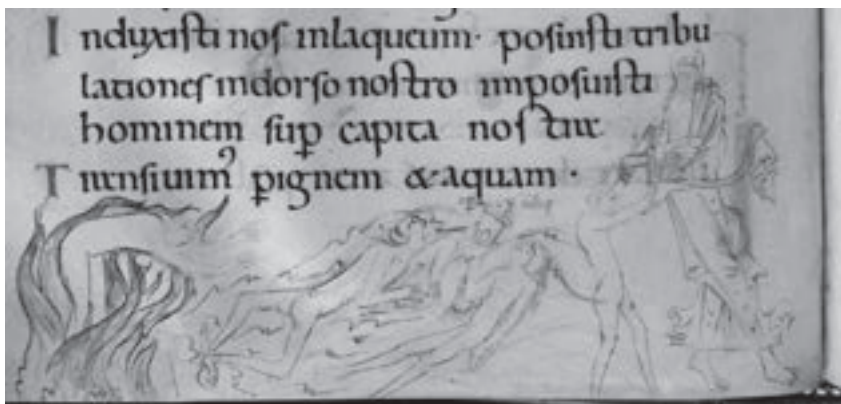 Induxisti nos inlaqueum· posuisti tribu
lationes indorso nostro imposuisti
hominem sup capita nostra
Transiuimꝰ p ignem &aquam·